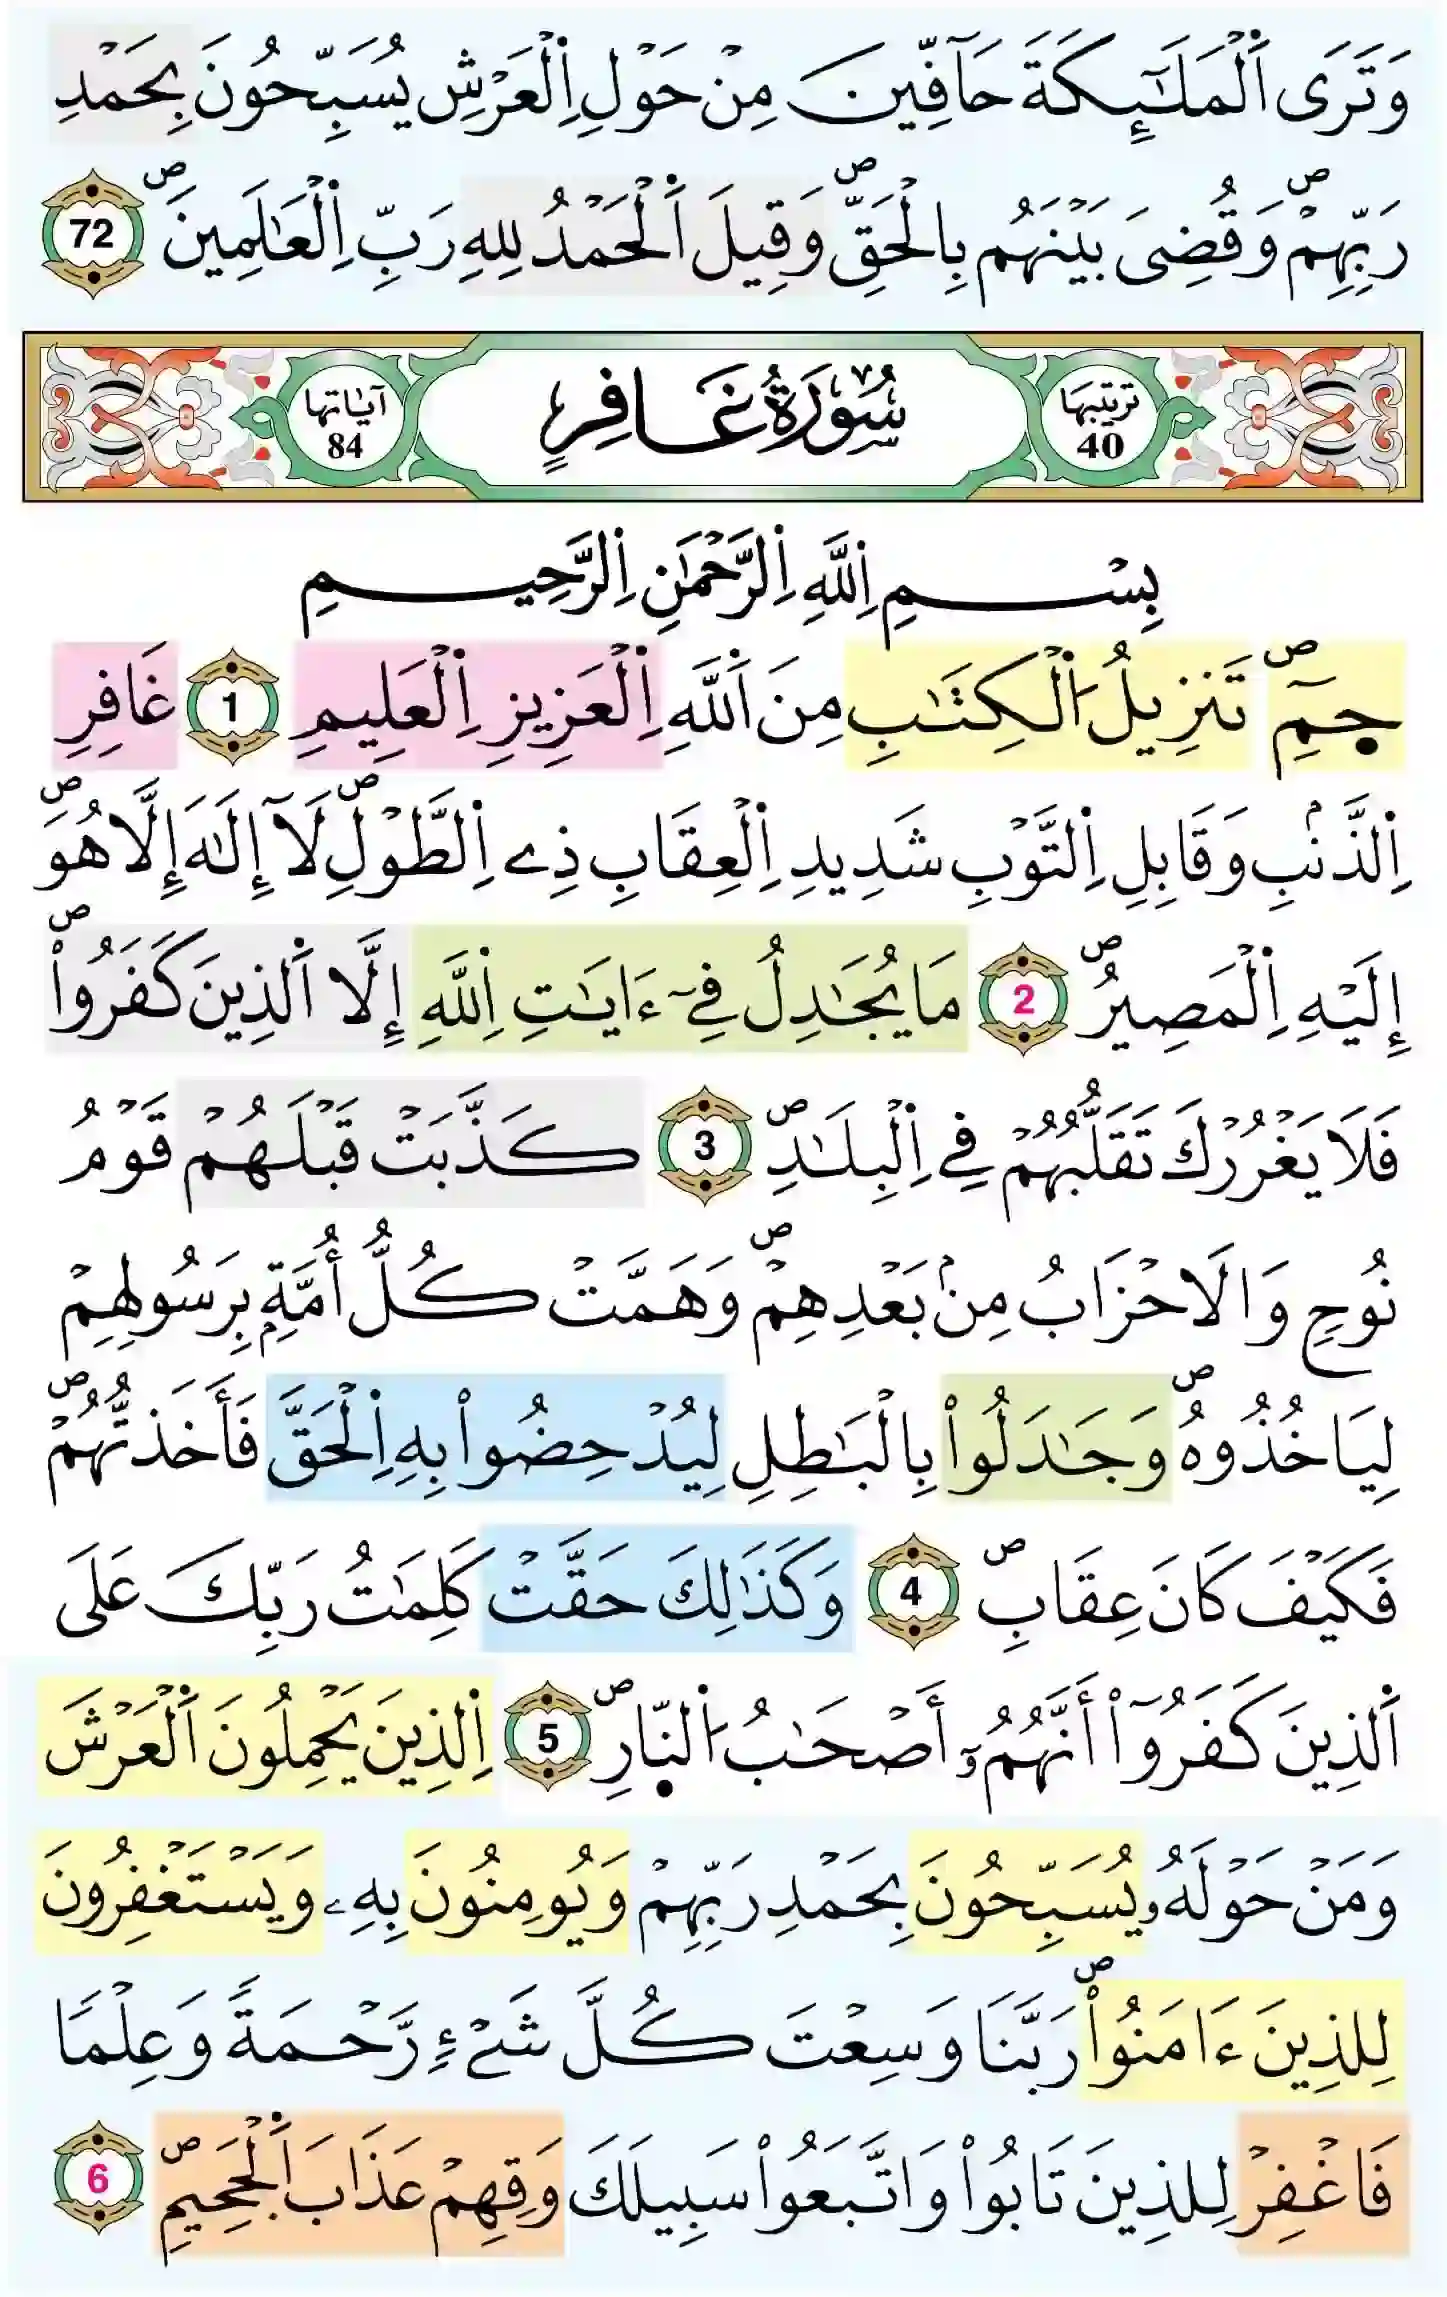 وَتَرَى اَ۬لْمَلَٰٓئِكَةَ حَآفِّينَ مِنْ حَوْلِ اِ۬لْعَرْشِ يُسَبِّحُونَ بِحَمْدِ
رَبِّهِمْۖ وَقُضِيَ بَيْنَهُم بِالْحَقِّۖ وَقِيلَ اَ۬لْحَمْدُ لِلهِ رَبِّ اِ۬لْعَٰلَمِينَۖ 72
سُورَةُ غَافِرٍ
ترتيبها 40
آياتها 84
بِسْمِ اِ۬للَّهِ اِ۬لرَّحْمَٰنِ اِ۬لرَّحِيمِ
حمِٓۖ تَنزِيلُ اُ۬لْكِتَٰبِ مِنَ اَ۬للَّهِ اِ۬لْعَزِيزِ اِ۬لْعَلِيمِ 1 غَافِرِ
اِ۬لذَّنۢبِ وَقَابِلِ اِ۬لتَّوْبِ شَدِيدِ اِ۬لْعِقَابِ ذِے اِ۬لطَّوْلِۖ لَآ إِلَٰهَ إِلَّا هُوَۖ
إِلَيْهِ اِ۬لْمَصِيرُۖ 2 مَا يُجَٰدِلُ فِےٓ ءَايَٰتِ اِ۬للَّهِ إِلَّا اَ۬لذِينَ كَفَرُواْۖ
فَلَا يَغْرُرْكَ تَقَلُّبُهُمْ فِے اِ۬لْبِلَٰدِۖ 3 كَذَّبَتْ قَبْلَهُمْ قَوْمُ
نُوحٍ وَالَاحْزَابُ مِنۢ بَعْدِهِمْۖ وَهَمَّتْ كُلُّ أُمَّةِۢ بِرَسُولِهِمْ
لِيَاخُذُوهُۖ وَجَٰدَلُواْ بِالْبَٰطِلِ لِيُدْحِضُواْ بِهِ اِ۬لْحَقَّ فَأَخَذتُّهُمْۖ
فَكَيْفَ كَانَ عِقَابِۖ 4 وَكَذَٰلِكَ حَقَّتْ كَلِمَٰتُ رَبِّكَ عَلَى
اَ۬لذِينَ كَفَرُوٓاْ أَنَّهُمُۥٓ أَصْحَٰبُ اُ۬لنّ۪ارِۖ 5 اِ۬لذِينَ يَحْمِلُونَ اَ۬لْعَرْشَ
وَمَنْ حَوْلَهُۥ يُسَبِّحُونَ بِحَمْدِ رَبِّهِمْ وَيُومِنُونَ بِهِۦ وَيَسْتَغْفِرُونَ
لِلذِينَ ءَامَنُواْۖ رَبَّنَا وَسِعْتَ كُلَّ شَےْءٖ رَّحْمَةٗ وَعِلْماٗ
فَاغْفِرْ لِلذِينَ تَابُواْ وَاتَّبَعُواْ سَبِيلَكَ وَقِهِمْ عَذَابَ اَ۬لْجَحِيمِۖ 6